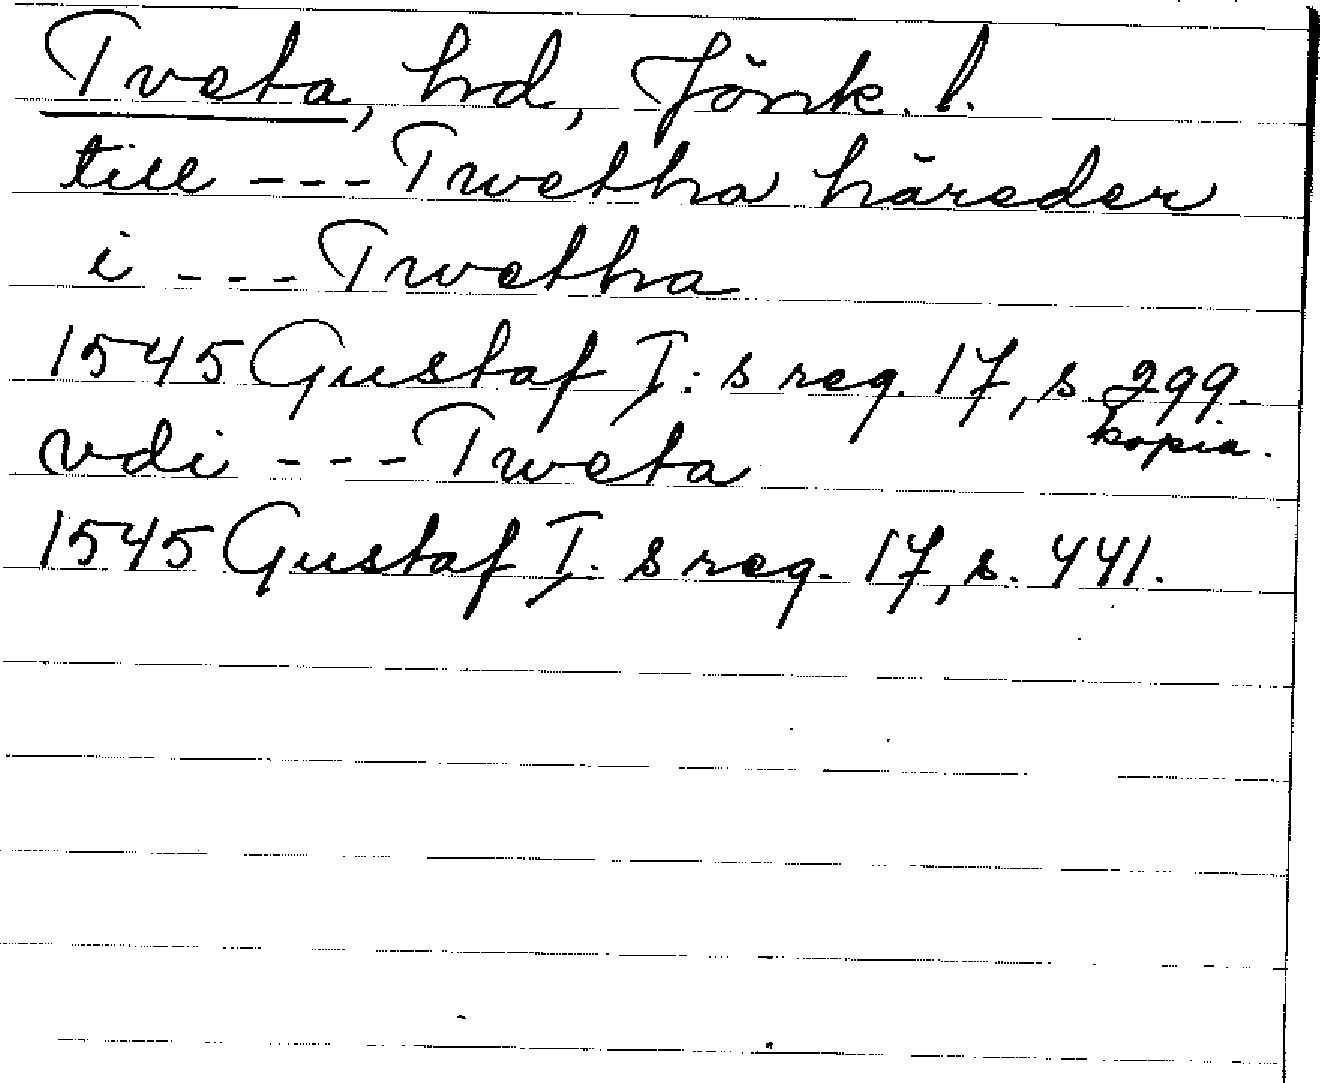 Tveta, hd, Jönk. l.
till --- Twetha häreder
i --- Twetha
1545 Gustaf I: s reg. 17, s. 299.
kopia.
vdi --- Tweta
1545 Gustaf I. s reg. 17, s. 441.